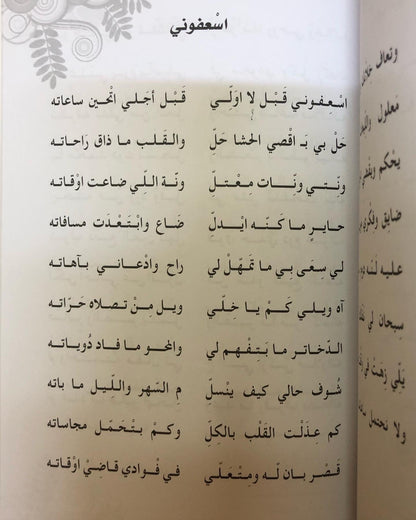 اسْعفوني
اسْعِفوني قَبْل لا اوَلِّي قَبْل أجَلي اتْحين ساعاته
حَلْ بي بَـ اقْصي الحشا حَلِّ والقَلب ما ذاق رَاحاته
ونِتي ونّات مِعْتلّ ونّة اللّي ضاعت اوْقاته
حايرٍ ما كنّه ايْدلّ ضَاع وابْتَعْدَت مسافاته
لي سِعَى بي ما تمَهّل لي راح وادْعاني بآهاته
آه ويلي كَمْ يا خِلّي ويل مِنْ تصلاه حَرّاته
الدّخاتر ما بَتِفْهم لي والمحو ما فاد دُوياته
شُوف حالي كيف ينْسلّ مِ السّهر واللّيل ما باته
كم عِذَلْت القَلْب بالكِلّ وكمْ بتْحَمّل مجاساته
قَصْر بان لَه ومِتْعَلّي في فوادي قاضِيْ اوْقاته
وتعاف
معلول
يحْكم
ضايق
عليه
سبحان لي
يَلّي زهَتْ في
ولا نحتمل